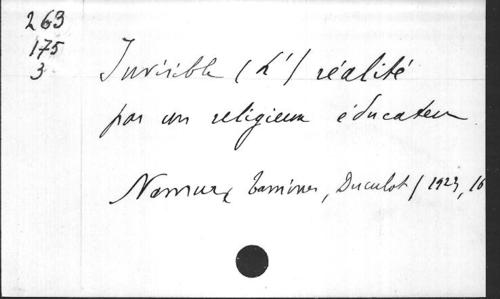 263
175
3
Invisible (L') réalité
par un religieux éducateur
Namur, Tamines, Duculot, 1923, 16